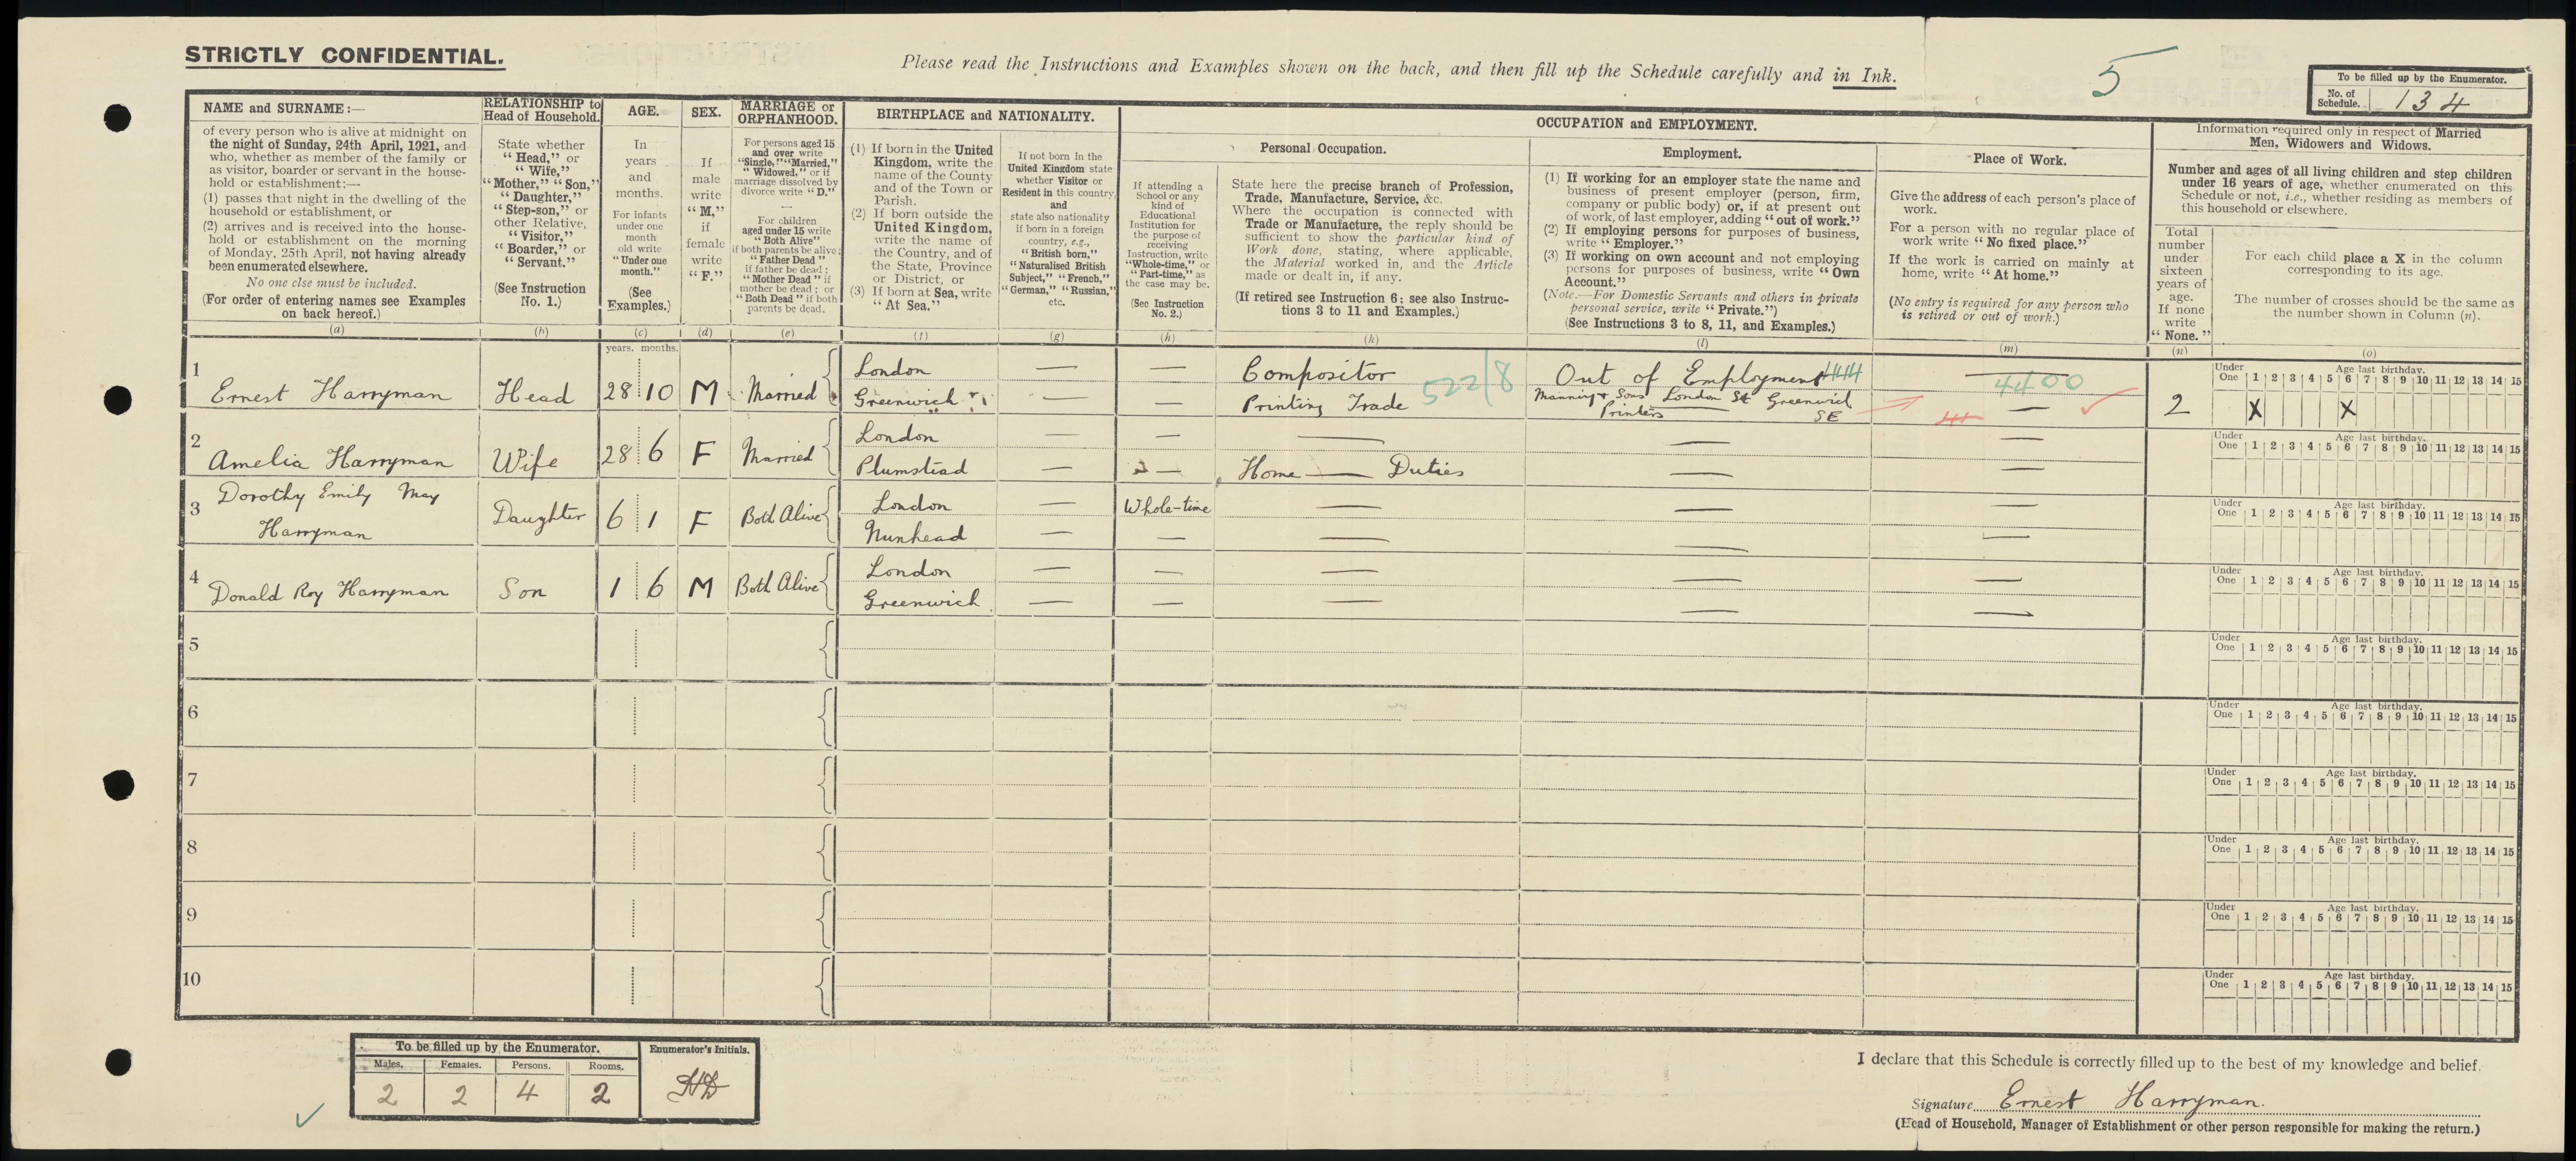 STRICTLY CONFIDENTIAL.
Please read the Instructions and Examples shown on the back, and then fill up the Schedule carefully and in Ink.
5
To be filled up by the Enumerator.
No. of Schedule. 134
NAME and SURNAME:—
of every person who is alive at midnight on
the night of Sunday, 24th April, 1921, and
who, whether as member of the family or
as visitor, boarder or servant in the house-
hold or establishment:—
(1) passes that night in the dwelling of the
household or establishment, or
(2) arrives and is received into the house-
hold or establishment on the morning
of Monday, 25th April, not having already
been enumerated elsewhere.
No one else must be included.
(For order of entering names see Examples
on back hereof.)
(a)
RELATIONSHIP to
Head of Household.
State whether
"Head," or
"Wife,"
"Mother," "Son,"
"Daughter,"
"Step-son," or
other Relative,
"Visitor,"
"Boarder," or
"Servant."
(See Instruction
No. 1.)
(b)
AGE.
In
years
and
months.
For infants
under one
month
old write
"Under one
month."
(See
Examples.)
(c)
SEX.
If
male
write
"M,"
if
female
write
"F."
(d)
MARRIAGE or
ORPHANHOOD.
For persons aged 15
and over write
"Single," "Married,"
"Widowed," or if
marriage dissolved by
divorce write "D."
—
For children
aged under 15 write
"Both Alive"
if both parents be alive;
"Father Dead"
if father be dead;
"Mother Dead" if
mother be dead; or
"Both Dead" if both
parents be dead.
(e)
BIRTHPLACE and NATIONALITY.
(1) If born in the United
Kingdom, write the
name of the County
and of the Town or
Parish.
(2) If born outside the
United Kingdom,
write the name of
the Country, and of
the State, Province
or District, or
(3) If born at Sea, write
"At Sea."
(f)
If not born in the
United Kingdom state
whether Visitor or
Resident in this country,
and
state also nationality
if born in a foreign
country, e.g.,
"British born,"
"Naturalised British
Subject," "French,"
"German," "Russian,"
etc.
(g)
OCCUPATION and EMPLOYMENT.
If attending a
School or any
kind of
Educational
Institution for
the purpose of
receiving
Instruction, write
"Whole-time," or
"Part-time," as
the case may be.
(See Instruction
No. 2.)
(h)
Personal Occupation.
State here the precise branch of Profession,
Trade, Manufacture, Service, &c.
Where the occupation is connected with
Trade or Manufacture, the reply should be
sufficient to show the particular kind of
Work done, stating, where applicable,
the Material worked in, and the Article
made or dealt in, if any.
(If retired see Instruction 6; see also Instruc-
tions 3 to 11 and Examples.)
(k)
Employment.
(1) If working for an employer state the name and
business of present employer (person, firm,
company or public body) or, if at present out
of work, of last employer, adding "out of work."
(2) If employing persons for purposes of business,
write "Employer."
(3) If working on own account and not employing
persons for purposes of business, write "Own
Account."
(Note.—For Domestic Servants and others in private
personal service, write "Private.")
(See Instructions 3 to 8, 11, and Examples.)
(l)
Place of Work.
Give the address of each person's place of
work.
For a person with no regular place of
work write "No fixed place."
If the work is carried on mainly at
home, write "At home."
(No entry is required for any person who
is retired or out of work.)
(m)
Information required only in respect of Married
Men, Widowers and Widows.
Number and ages of all living children and step children
under 16 years of age, whether enumerated on this
Schedule or not, i.e., whether residing as members of
this household or elsewhere.
Total
number
under
sixteen
years of
age.
If none
write
"None."
(n)
For each child place a X in the column
corresponding to its age.
The number of crosses should be the same as
the number shown in Column (n).
(o)
years. months.
1 Ernest Harryman Head 28 10 M Married London — — Compositor 522/8 Out of Employment 444 — 4400
Greenwich — — Printing Trade Manning & Sons London St Greenwich — 2 X X
Printers SE
Under One 1 2 3 4 5 6 7 8 9 10 11 12 13 14 15 Age last birthday.
2 Amelia Harryman Wife 28 6 F Married London — — — — —
Plumstead — — Home — Duties — —
Under One 1 2 3 4 5 6 7 8 9 10 11 12 13 14 15 Age last birthday.
3 Dorothy Emily May
Harryman Daughter 6 1 F Both Alive London — Whole-time — — —
Nunhead — — — — —
Under One 1 2 3 4 5 6 7 8 9 10 11 12 13 14 15 Age last birthday.
4 Donald Roy Harryman Son 1 6 M Both Alive London — — — — —
Greenwich — — — — —
Under One 1 2 3 4 5 6 7 8 9 10 11 12 13 14 15 Age last birthday.
5
Under One 1 2 3 4 5 6 7 8 9 10 11 12 13 14 15 Age last birthday.
6
Under One 1 2 3 4 5 6 7 8 9 10 11 12 13 14 15 Age last birthday.
7
Under One 1 2 3 4 5 6 7 8 9 10 11 12 13 14 15 Age last birthday.
8
Under One 1 2 3 4 5 6 7 8 9 10 11 12 13 14 15 Age last birthday.
9
Under One 1 2 3 4 5 6 7 8 9 10 11 12 13 14 15 Age last birthday.
10
Under One 1 2 3 4 5 6 7 8 9 10 11 12 13 14 15 Age last birthday.
To be filled up by the Enumerator.
Males. Females. Persons. Rooms.
2 2 4 2
Enumerator's Initials.
I declare that this Schedule is correctly filled up to the best of my knowledge and belief.
Signature Ernest Harryman.
(Head of Household, Manager of Establishment or other person responsible for making the return.)